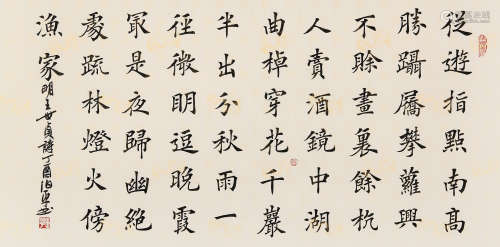 從遊指點南高
勝躡屩攀蘿興
不賖畫裏餘杭
人賣酒鏡中湖
曲棹穿花千巖
半出分秋雨一
徑微明逗晚霞
冣是夜歸幽絕
處疏林燈火傍
漁家
明王世貞詩丁酉書